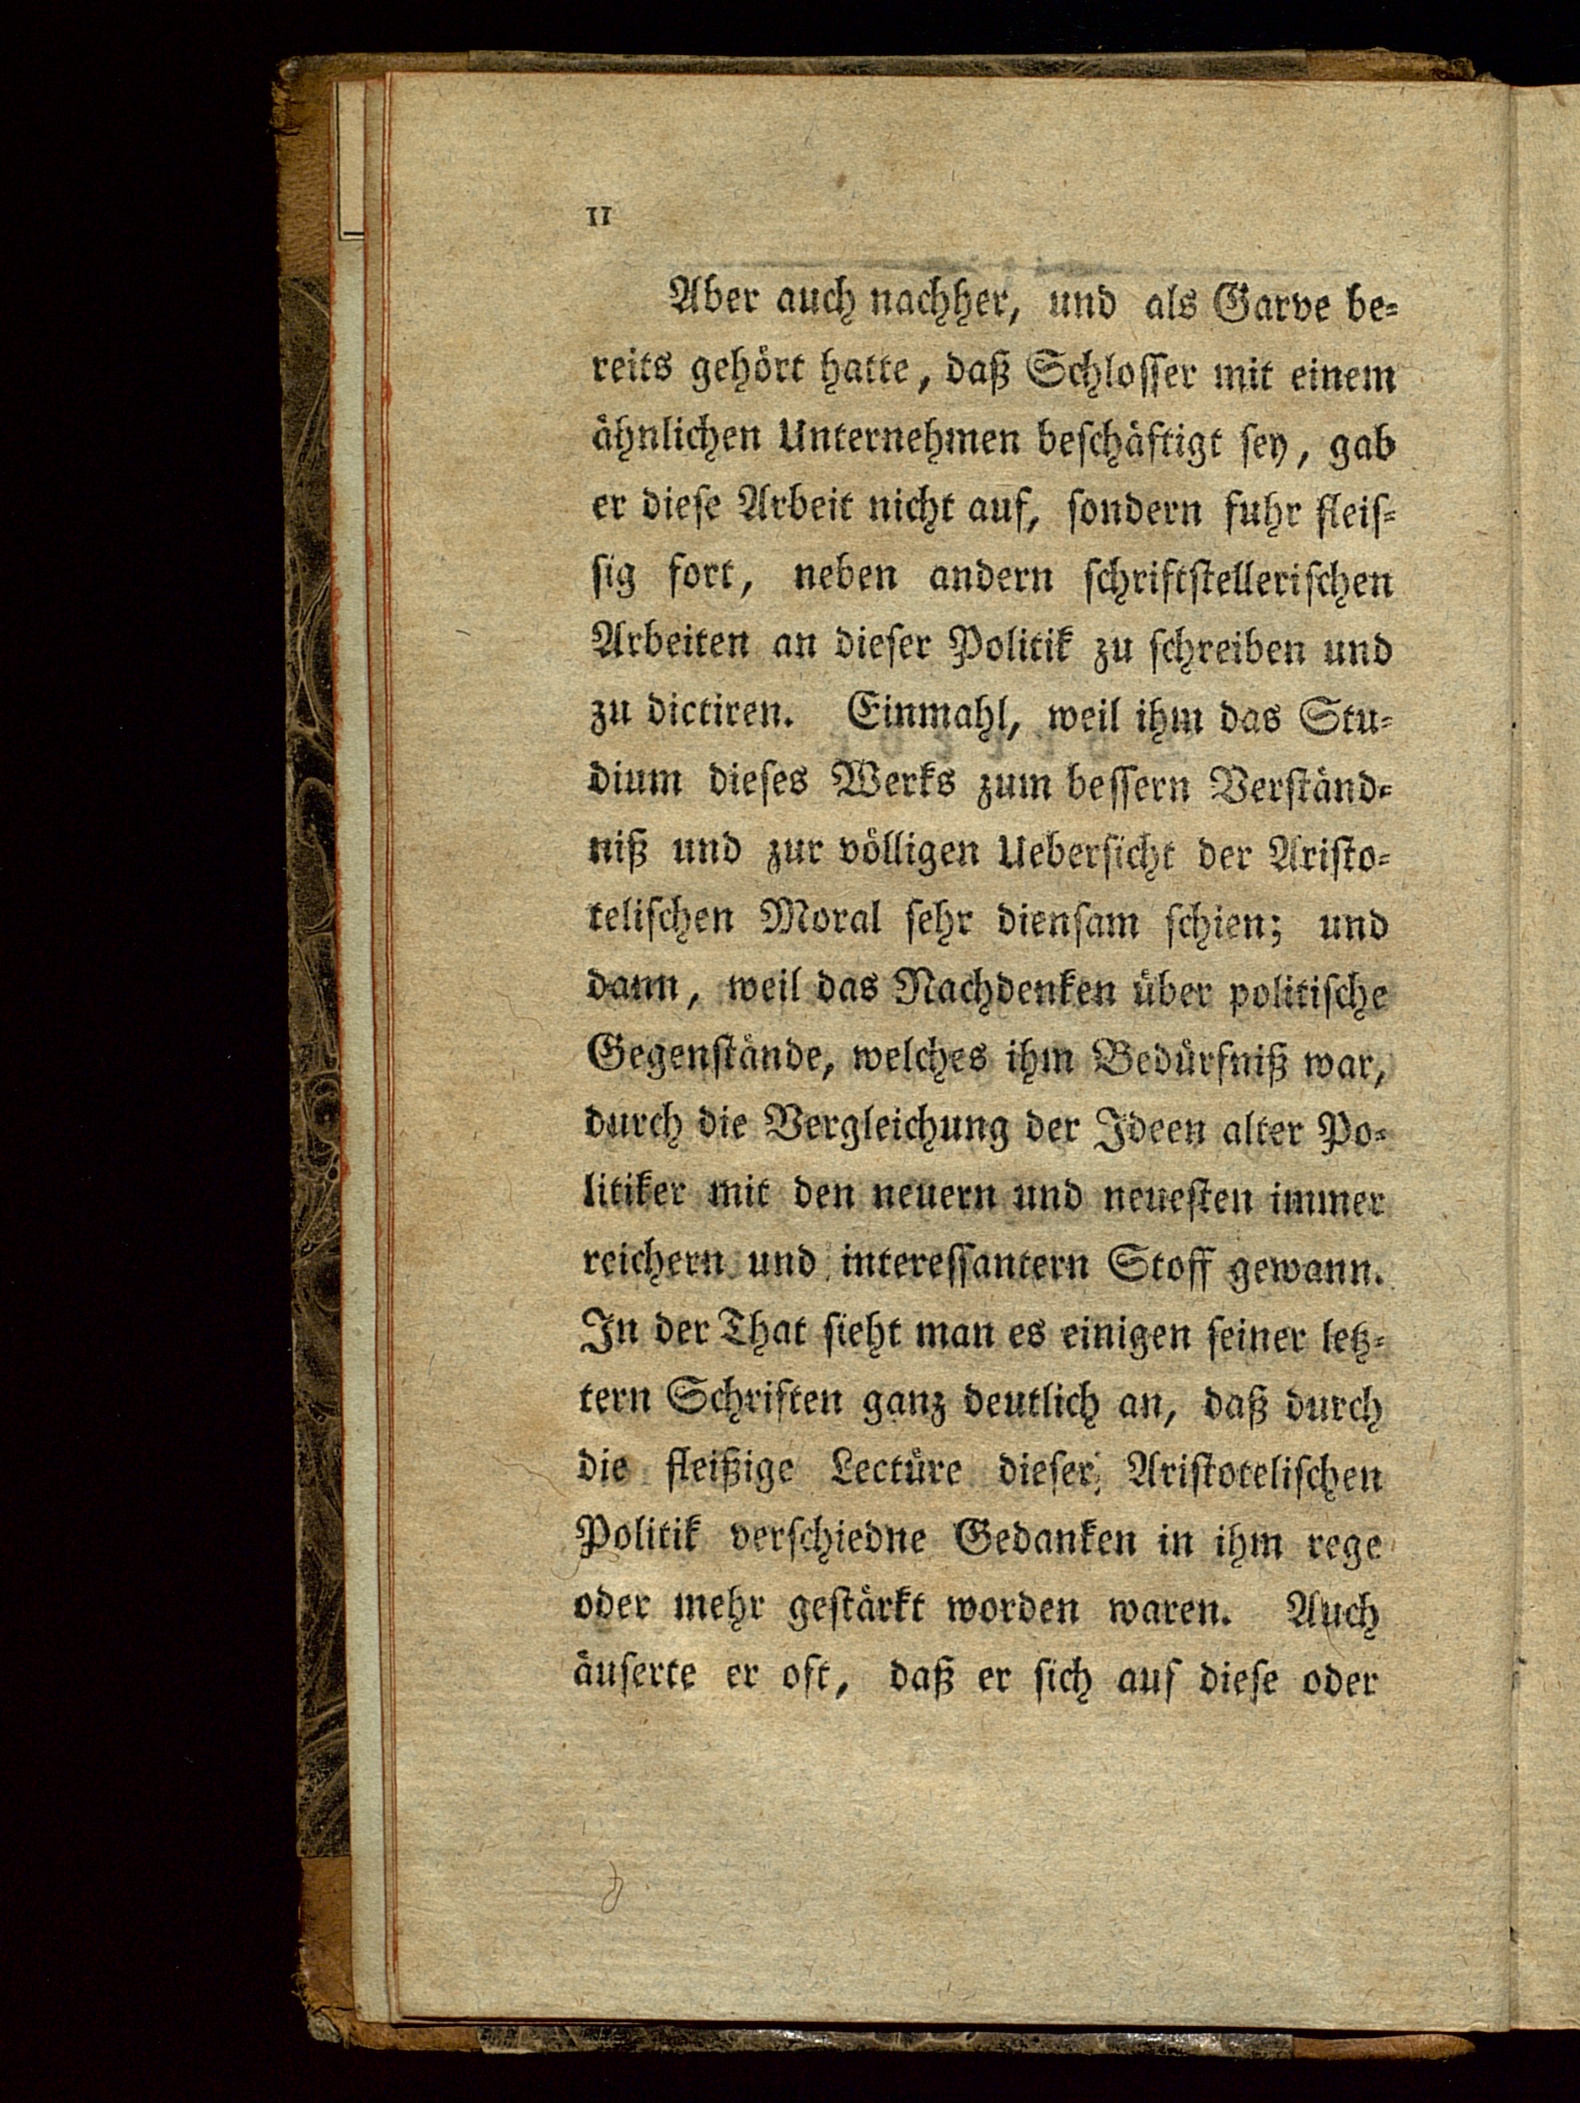 II
Aber auch nachher, und als Garve be-
reits gehört hatte, daß Schlosser mit einem
ähnlichen Unternehmen beschäftigt sey, gab
er diese Arbeit nicht auf, sondern fuhr fleis-
sig fort, neben andern schriftstellerischen
Arbeiten an dieser Politik zu schreiben und
zu dictiren. Einmahl, weil ihm das Stu-
dium dieses Werks zum bessern Verständ-
niß und zur völligen Uebersicht der Aristo-
telischen Moral sehr diensam schien; und
dann, weil das Nachdenken über politische
Gegenstände, welches ihm Bedürfniß war,
durch die Vergleichung der Ideen alter Po-
litiker mit den neuern und neuesten immer
reichern und interessantern Stoff gewann.
In der That sieht man es einigen seiner letz-
tern Schriften ganz deutlich an, daß durch
die fleißige Lectüre dieser Aristotelischen
Politik verschiedne Gedanken in ihm rege
oder mehr gestärkt worden waren. Auch
äuserte er oft, daß er sich auf diese oder